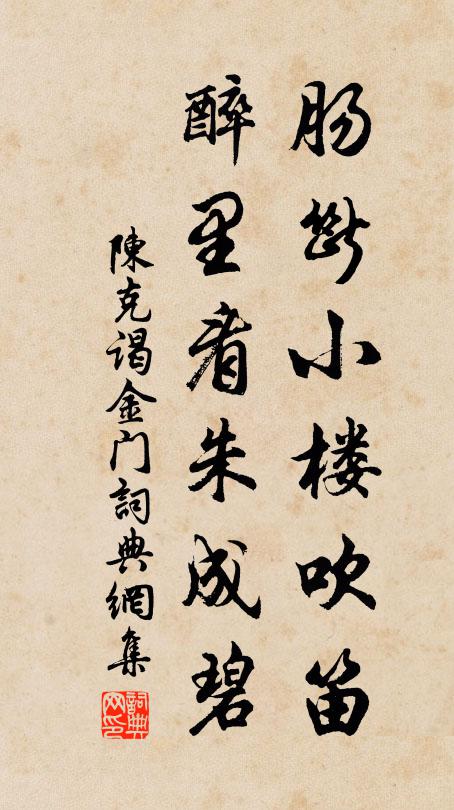 肠断小楼吹笛
醉里看朱成碧
陳克谒金门詞典網集
詞典网印